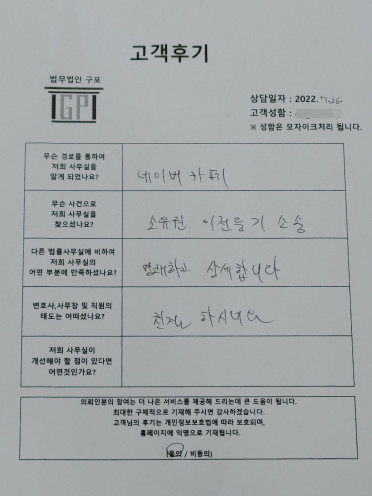 고객후기
법무법인 구포
GP
상담일자 : 2022. 7.26.
고객성함 :
※ 성함은 모자이크처리 됩니다.
무슨 경로를 통하여
저희 사무실을
알게 되었나요?
네이버 카페
무슨 사건으로
저희 사무실을
찾으셨나요?
소유권 이전등기 소송
다른 법률사무실에 비하여
저희 사무실의
어떤 부분에 만족하셨나요?
명쾌하고 상세합니다
변호사,사무장 및 직원의
태도는 어떠셨나요?
친절 하시네요
저희 사무실이
개선해야 할 점이 있다면
어떤것인가요?
의뢰인분의 참여는 더 나은 서비스를 제공해 드리는데 큰 도움이 됩니다.
최대한 구체적으로 기재해 주시면 감사하겠습니다.
고객님의 후기는 개인정보보호법에 따라 보호되며,
홈페이지에 익명으로 기재됩니다.
(동의 / 비동의)